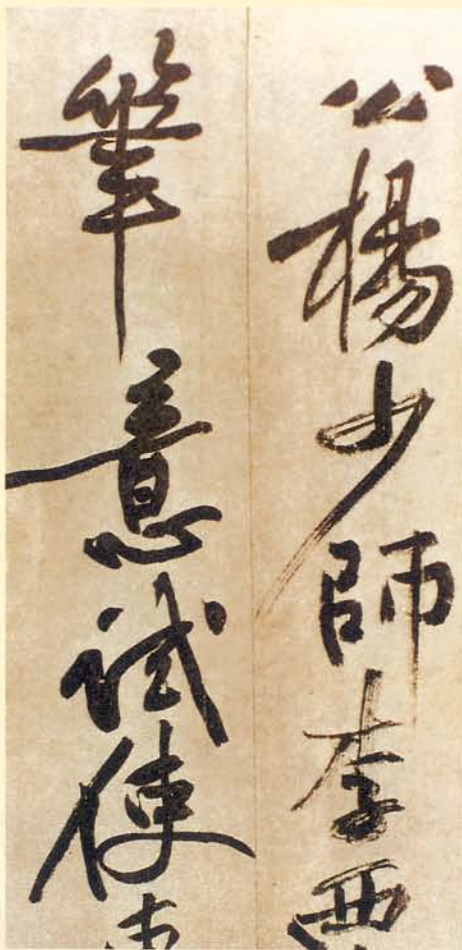 公楊少師李西
筆意試使東